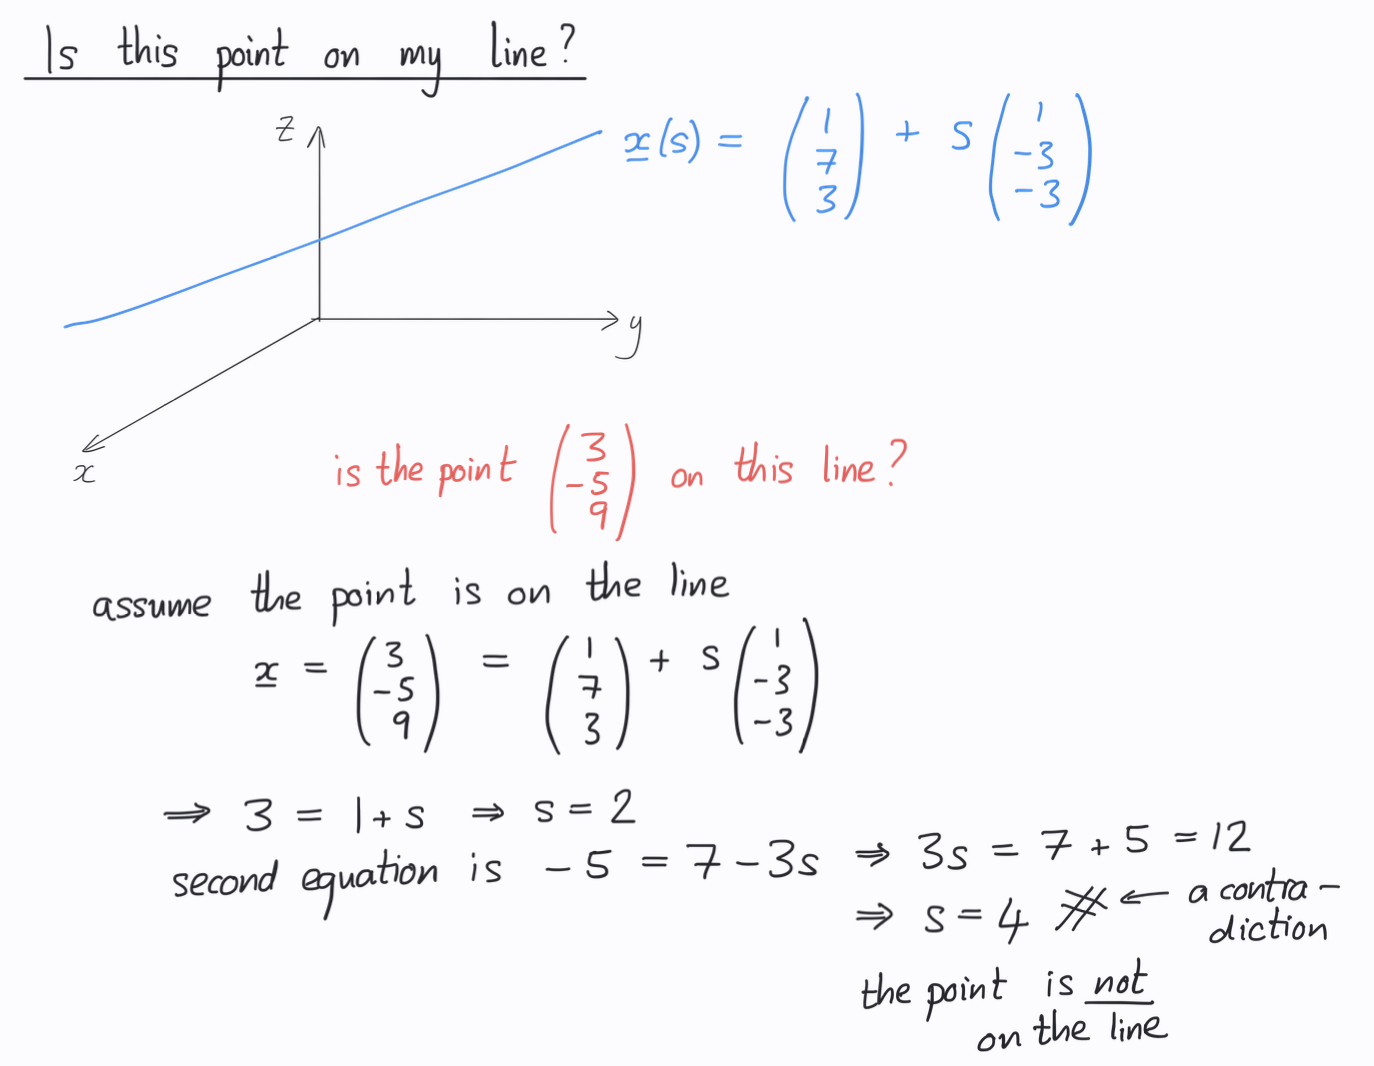 Is this point on my line?
z
x(s) = (1 7 3) + s (1 -3 -3)
y
x
is the point (3 -5 9) on this line?
assume the point is on the line
x = (3 -5 9) = (1 7 3) + s (1 -3 -3)
⇒ 3 = 1 + s ⇒ s = 2
second equation is -5 = 7 - 3s ⇒ 3s = 7 + 5 = 12
⇒ s = 4 ※ ← a contra-
diction
the point is not
on the line